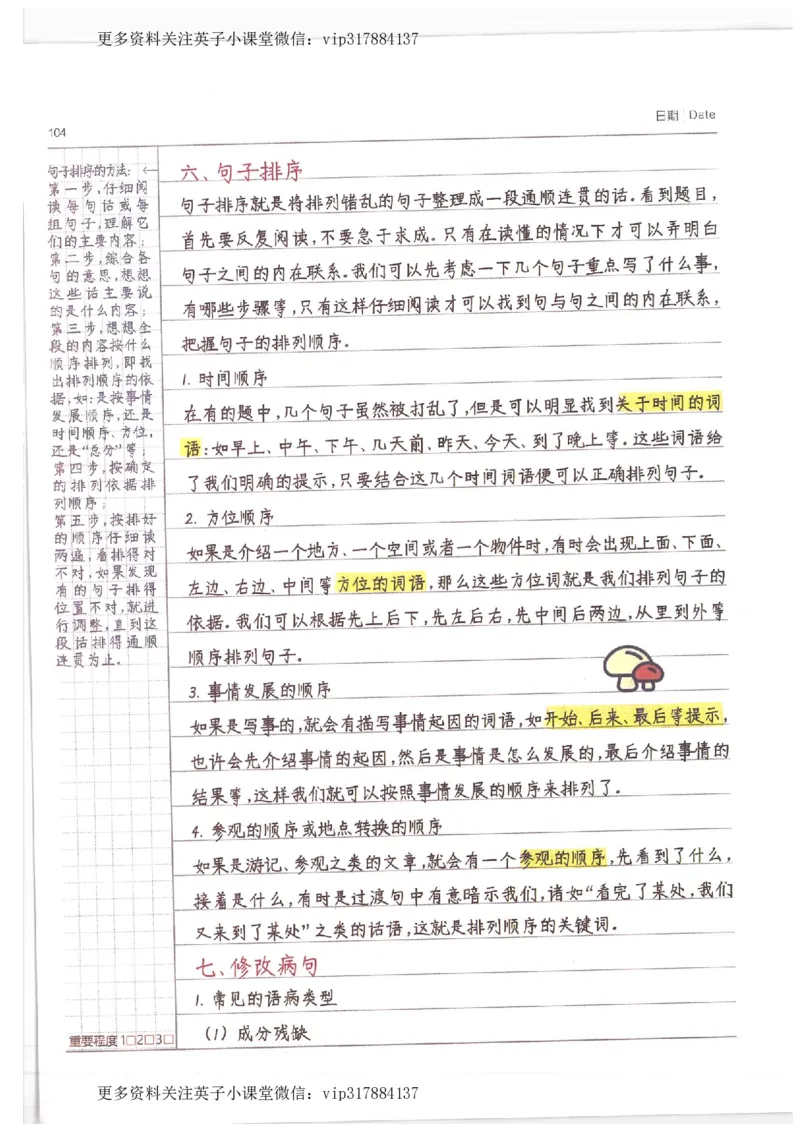 更多资料关注英子小课堂微信：vip317884137
日期 Date
104
句子排序的方法：
第一步，仔细阅
读每句话或每
组句子，理解它
们的主要内容；
第二步，综合各
句的意思，想想
这些话主要说
的是什么内容；
第三步，想想全
段的内容按什么
顺序排列，即找
出排列顺序的依
据，如：是按事情
发展顺序，还是
时间顺序、方位，
还是“总分”等；
第四步，按确定
的排列依据排
列顺序；
第五步，按排好
的顺序仔细读
两遍，看排得对
不对，如果发现
有的句子排得
位置不对，就进
行调整，直到这
段话排得通顺
连贯为止。
六、句子排序
句子排序就是将排列错乱的句子整理成一段通顺连贯的话。看到题目，
首先要反复阅读，不要急于求成。只有在读懂的情况下才可以弄明白
句子之间的内在联系。我们可以先考虑一下几个句子重点写了什么事，
有哪些步骤等，只有这样仔细阅读才可以找到句与句之间的内在联系，
把握句子的排列顺序。
1. 时间顺序
在有的题中，几个句子虽然被打乱了，但是可以明显找到关于时间的词
语：如早上、中午、下午、几天前、昨天、今天、到了晚上等。这些词语给
了我们明确的提示，只要结合这几个时间词语便可以正确排列句子。
2. 方位顺序
如果是介绍一个地方、一个空间或者一个物件时，有时会出现上面、下面、
左边、右边、中间等方位的词语，那么这些方位词就是我们排列句子的
依据。我们可以根据先上后下，先左后右，先中间后两边，从里到外等
顺序排列句子。
3. 事情发展的顺序
如果是写事的，就会有描写事情起因的词语，如开始、后来、最后等提示，
也许会先介绍事情的起因，然后是事情是怎么发展的，最后介绍事情的
结果等，这样我们就可以按照事情发展的顺序来排列了。
4. 参观的顺序或地点转换的顺序
如果是游记、参观之类的文章，就会有一个参观的顺序，先看到了什么，
接着是什么，有时是过渡句中有意暗示我们，诸如“看完了某处，我们
又来到了某处”之类的话语，这就是排列顺序的关键词。
七、修改病句
1. 常见的语病类型
（1）成分残缺
重要程度 1□2□3□
更多资料关注英子小课堂微信：vip317884137